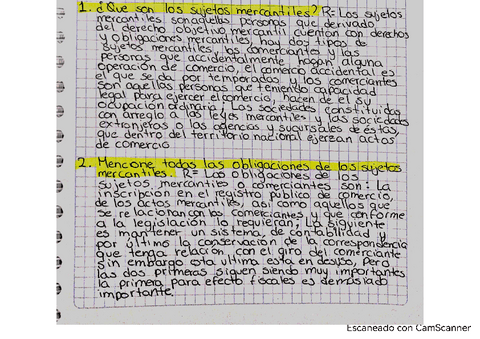 1. ¿Que son los sujetos mercantiles? R- Los sujetos
mercantiles son aquellas personas que derivado
del derecho objetivo mercantil cuentan con derechos
y obligaciones mercantiles, hay dos tipos de
sujetos mercantiles, los comerciantes y las
personas que accidentalmente hagan alguna
operación de comercio, el comercio accidental es
el que se da por temporadas y los comerciantes
son aquellas personas que teniendo capacidad
legal para ejercer el comercio, hacen de el su
ocupación ordinaria, Las sociedades constituidas
con arreglo a las leyes mercantiles y las sociedades
extranjeras o las agencias y sucursales de éstas,
que dentro del territorio nacional ejerzan actos
de comercio
2. Mencione todas las obligaciones de los sujetos
mercantiles. R= Las obligaciones de los
sujetos mercantiles o comerciantes son: La
inscripción en el registro público de comercio,
de los actos mercantiles, así como aquellos que
se relacionan con los comerciantes, y que conforme
a la legislación lo requieran; La siguiente
es mantener un sistema, de contabilidad y
por último la conservación de la correspondencia
que tenga relación con el giro del comerciante
sin embargo esta ultima esta en desuso, pero
las dos primeras siguen siendo muy importantes
la primera para efecto fiscales es demasiado
importante.
Escaneado con CamScanner